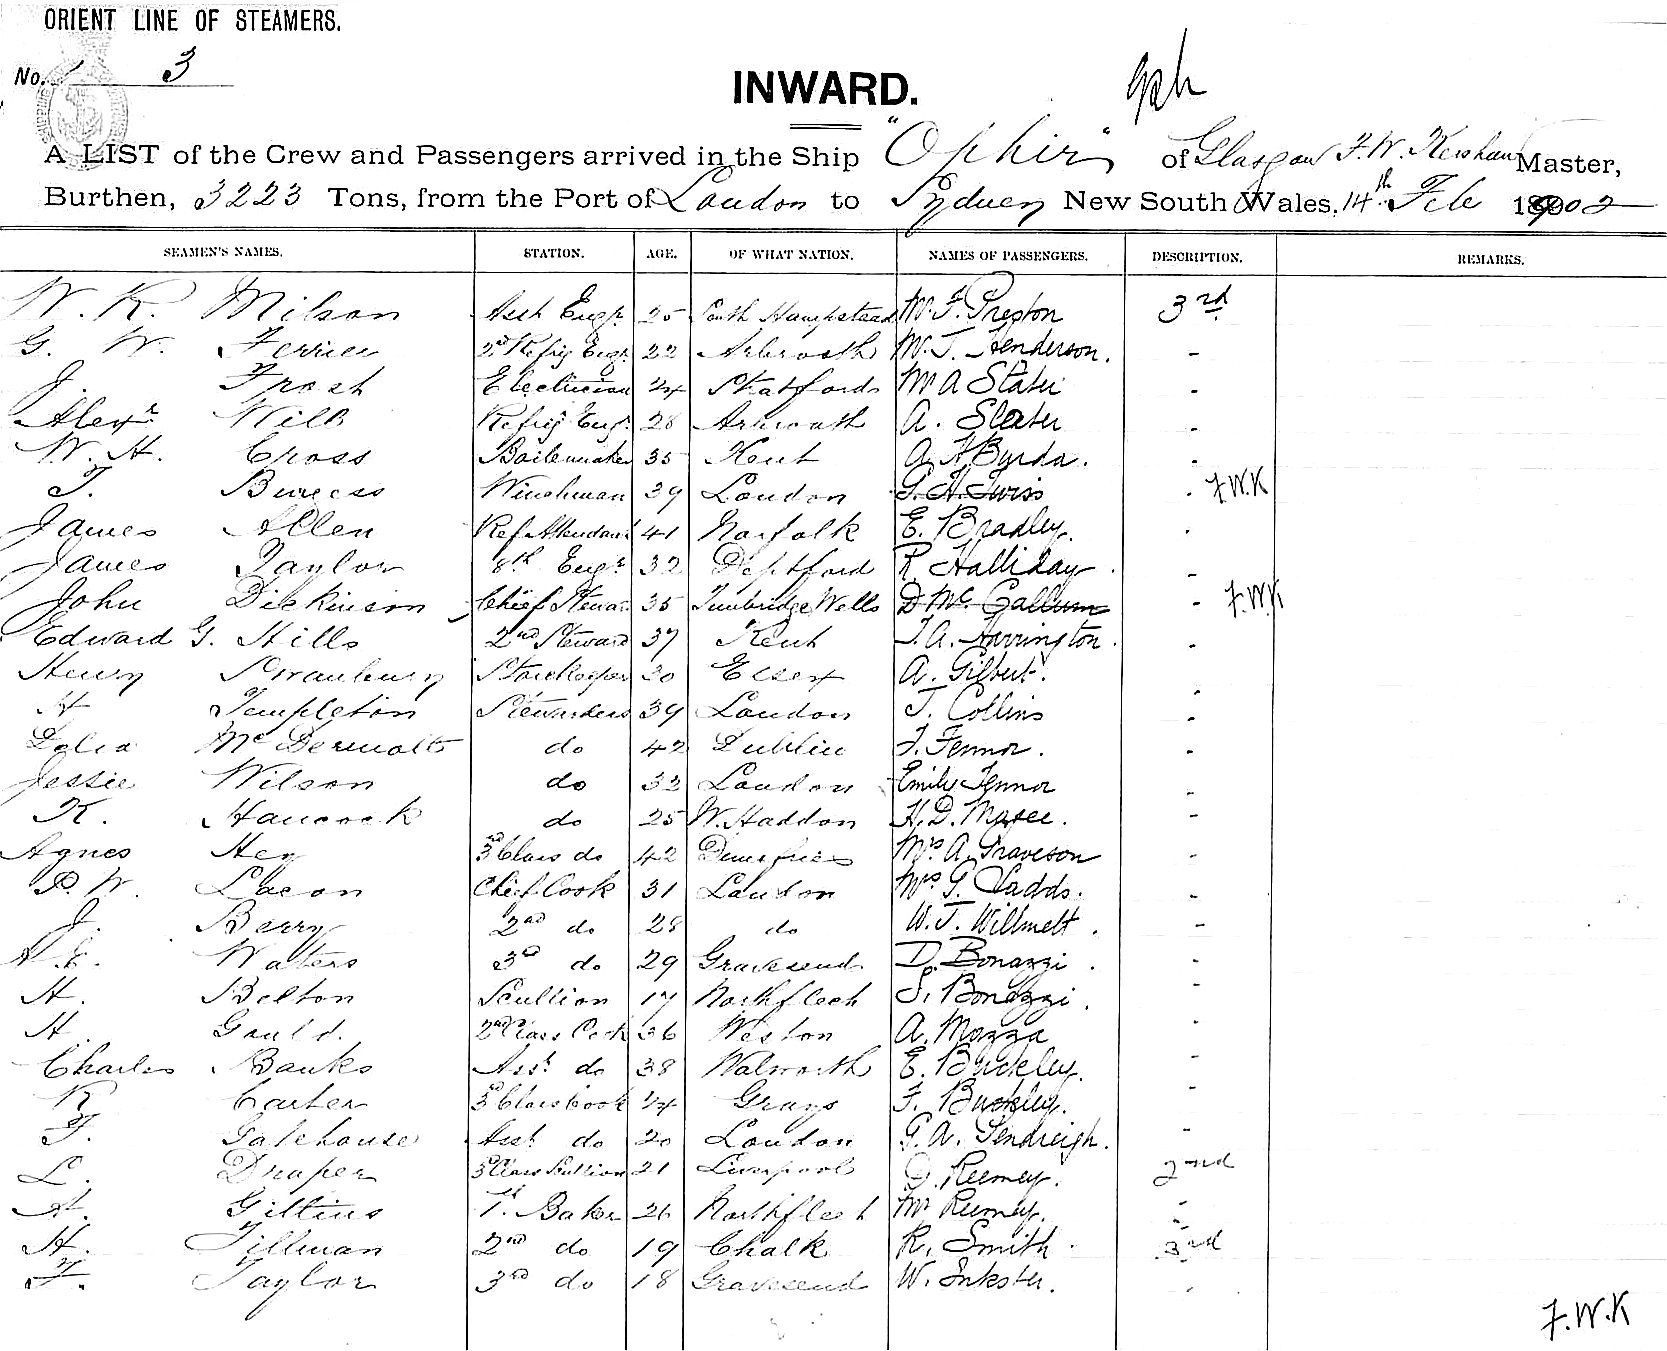 ORIENT LINE OF STEAMERS.
No. 3
INWARD.
A LIST of the Crew and Passengers arrived in the Ship "Ophir" of Glasgow F. W. Kershaw Master,
Burthen, 3223 Tons, from the Port of London to Sydney New South Wales, 14th Feb 1902
SEAMEN'S NAMES. STATION. AGE. OF WHAT NATION. NAMES OF PASSENGERS. DESCRIPTION. REMARKS.
W. K. Milson Asst Engr. 25 South Hampstead W. F. Preston 3rd
G. W. Ferrier 2nd Refrig Engr 22 Arbroath W. J. Henderson. -
J. Frost Electrician 24 Stratford M A Slater -
Alexr Will Refrig Engr 28 Arbroath A. Slater -
W. H. Cross Boilermaker 35 Kent A. H. Byrda. -
T. Burgess Winchman 39 London G. H. Twiss - F.W.K
James Allen Ref Attendant 41 Norfolk E. Bradley. -
James Taylor 8th Engr 32 Deptford R. Halliday. -
John Dickinson Chief Steward 35 Tunbridge Wells D. Mc Callum - F.W.K
Edward G. Hills 2nd Steward 37 Kent J. A. Harrington. -
Henry Storekeeper 30 Essex A. Gilbert. -
H Templeton Stewardess 39 London J. Collins -
Delia McDermott do 42 Dublin J. Fennor. -
Jessie Wilson do 33 London Emily Fennor -
K. Hancock do 25 W. Haddon H. D. Masee. -
Agnes Hey 3rd Class do 42 Dumfries Mrs A. Graveson -
P. W. Lacon Chief Cook 31 London Mrs G. Dadds. -
J. Berry 2nd do 28 do W. J. Willmett. -
A. E. Walters 3rd do 29 Gravesend D. Bonazzi. -
H. Belton Scullion 17 Northfleet S. Bonazzi. -
H. Gould. 2nd Class Cook 36 Weston A. Mazza -
Charles Banks Asst do 38 Walworth E. Buckley. -
R Carter 3rd Class Cook 24 Grays F. Buckley. -
F. Gatehouse Asst do 20 London G. A. Sendreigh. -
L. Draper 3rd Class Scullion 21 Liverpool Reemey. 2nd
A. Gittins 1st Baker 26 Northfleet Mrs Reemey. -
H. Tillman 2nd do 19 Chalk R. Smith. 3rd
F. Taylor 3rd do 18 Gravesend W. Inkster. -
F.W.K